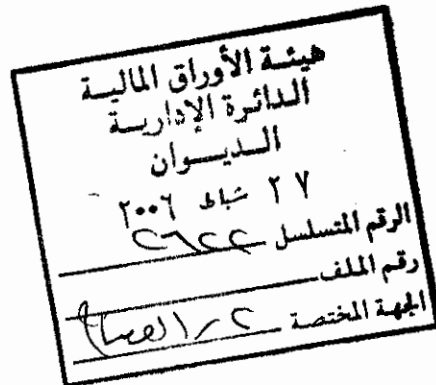 هيئة الأوراق المالية
الدائرة الإدارية
الديوان
٢٧ شباط ٢٠٠٦
الرقم المتسلسل ٢٦٢٢
رقم الملف
الجهة المختصة